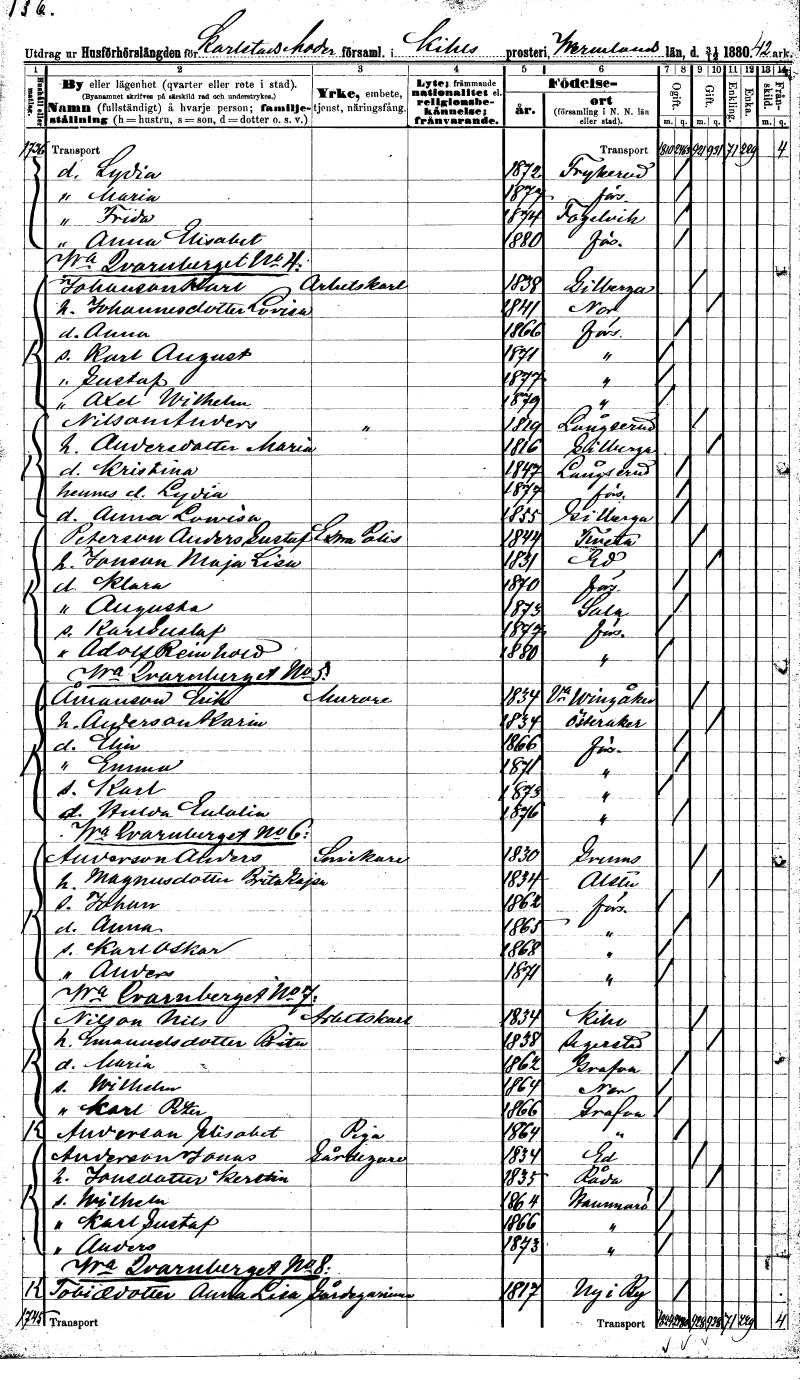 136.
Utdrag ur Husförhörslängden för Karlstads Moder församl. i Kihls prosteri, Wermlands län, d. 31/12 1880. 42 ark.
1 2 3 4 5 6 7 8 9 10 11 12 13 14
Hushåll eller matlag.
By eller lägenhet (qvarter eller rote i stad).
(Byanamnet skrifves på särskild rad och understrykes.)
Namn (fullständigt) å hvarje person; familjeställning (h=hustru, s=son, d=dotter o. s. v.)
Yrke, embete, tjenst, näringsfång.
Lyte; främmande nationalitet el. religionsbekännelse; frånvarande.
Födelse-
år.
ort (församling i N. N. län eller stad).
Ogift. m. q.
Gift. m. q.
Enkling.
Enka.
Frånskild. m. q.
1736 Transport Transport 1810 2163 921 931 71 229 4
d. Lydia 1872 Frykerud /
" Maria 1877 förs. /
" Frida 1874 Fogelvik /
" Anna Elisabet 1880 förs. /
Wra Qvarnberget No 4:
Johanson Karl Arbetskarl 1838 Gilberga /
h. Johannesdotter Lovisa 1841 Nor /
d. Anna 1866 förs. /
K s. Karl August 1871 " /
" Gustaf 1877 " /
" Axel Wilhelm 1879 " /
Nilson Anders " 1819 Långserud /
h. Andersdotter Maria 1816 Gilberga /
K d. Kristina 1847 Långserud /
hennes d. Lydia 1877 förs. /
d. Anna Lowisa 1855 Gilberga /
Peterson Anders Gustaf Polis 1844 Tveta /
h. Jonson Maja Lisa 1831 Ed /
d. Klara 1870 förs. /
K " Augusta 1873 Sala /
s. Karl Gustaf 1877 förs. /
" Adolf Reinhold 1880 " /
Wra Qvarnberget No 5:
Åmanson Erik Murare 1834 Vra Wingåker /
h. Anderson Karin 1834 Österåker /
d. Elin 1866 förs. /
K " Emma 1871 " /
s. Karl 1873 " /
d. Hulda Eulalia 1876 " /
Wra Qvarnberget No 6:
Anderson Anders Snickare 1830 Grums /
h. Magnusdotter Brita Kajsa 1834 Alster /
s. Johan 1862 förs. /
K d. Anna 1865 " /
s. Karl Oskar 1868 " /
" Anders 1871 " /
Wra Qvarnberget No 7:
Nilson Nils Arbetskarl 1834 Kihl /
h. Emanuelsdotter Brita 1838 /
K d. Maria 1862 Grafva /
s. Wilhelm 1864 Nor /
" Karl Peter 1866 Grafva /
K Anderson Elisabet Piga 1864 " /
Anderson Jonas Gårdegare 1834 Ed /
h. Jonsdotter Kerstin 1835 Råda /
K s. Wilhelm 1864 Hammarö /
" Karl Gustaf 1866 " /
" Anders 1873 " /
Wra Qvarnberget No 8:
K Tobiædotter Anna Lisa 1817 Ny i By /
1745 Transport Transport 928 938 71 229 4